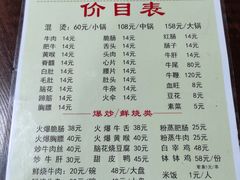 价目表
混 烫: 60元/小锅 108元/中锅 158元/大锅
牛肉 14元 脆肠 14元 红肠 14元
肥牛 14元 舌头 14元 肠子 14元
黄喉 14元 头肉 14元 牛肝 14元
脊髓 14元 心片 14元 牛尾 80元
白肚 14元 腰片 14元 牛鞭 120元
毛肚 14元 肚头 14元 血旺 5元
脑花 14元 豆花 5元
蹄筋 14元 胸膘 14元 素菜 5元
火腿 14元
爆炒/鲜烧类
火爆脆肠 38元 火爆腰花 40元 粉蒸肥肠 25元
火爆胸膘 40元 火爆黄喉 40元 粉蒸牛肉 25元
炒牛肉丝 40元 脑花烧豆腐 30元 豆花 5元
炒牛肝 30元 甜皮鸭 45元 钵钵鸡 48元/份
鲜烧牛肉 20元/碗 50元/大盘 米饭 1元/人